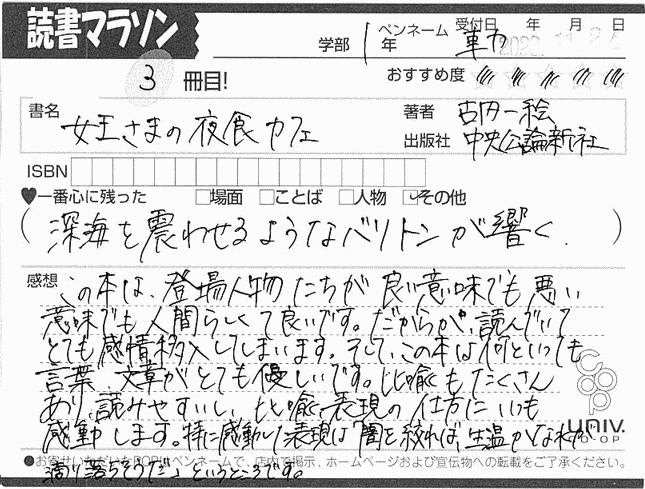 読書マラソン
学部 1年 ペンネーム 受付日 年 月 日
2022 11
3 冊目!
おすすめ度
書名 女王さまの夜食カフェ
著者 古内一絵
出版社 中央公論新社
ISBN
♥一番心に残った □場面 □ことば □人物 ☑その他
(深海を震わせるようなバリトンが響く。)
感想 この本は、登場人物たちが良い意味でも悪い
意味でも人間らしくて良いです。だからか、読んでいて
とても感情移入してしまいます。そして、この本は何といっても
言葉、文章がとても優しいです。比喩もたくさん
あり、読みやすいし、比喩表現の仕方にいつも
感動します。特に感動した表現は「闇を絞れば、生温かな
滴り落ちそうだ」というところです。
coop
UNIV.
CO・OP
●お寄せいただいたPOPはペンネームで、店内で掲示、ホームページおよび宣伝物への転載をご了承ください。